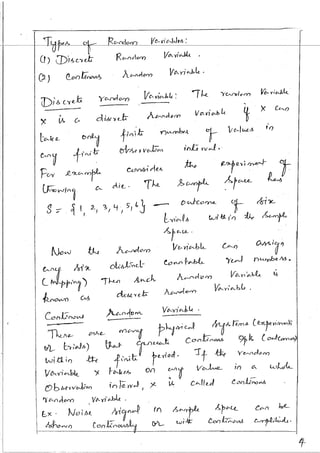 Types of Random Variables:
(1) Discrete Random Variable.
(2) Continous Random Variable.
Discrete random Variable: The random Variable
X is a discrete random Variable if X can
take only finite number of values in
any finite observation interval.
For example consider the experiment of
throwing a die. The Sample space has
S = {1, 2, 3, 4, 5, 6} — outcome of six
trials within the Sample
Space.
Now the random Variable can assign
any six distinct Countable real numbers.
(mapping) Then Such random Variable is
known as discrete random Variable.
Continous Random Variable:
There are many physical Systems (experiments
or trials) that generate Continous (outcomes)
within the finite period. If the random
Variable X takes on any Value in a whole
observation interval, X is called Continous
random Variable.
Ex- Noise signal in Sample Space can be
shown Continously or with Continous amplitudes.
4